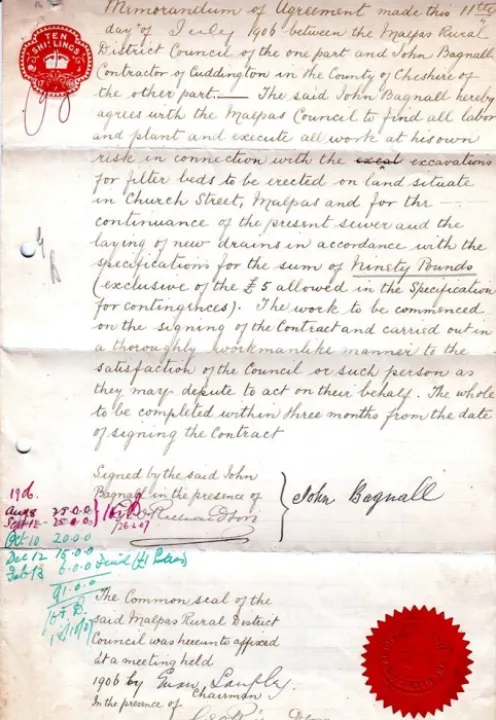 TEN
SHILLINGS
Memorandum of Agreement made this 11th
day of July 1906 between the Malpas Rural
District Council of the one part and John Bagnall
Contractor of Cuddington in the County of Cheshire of
the other part. The said John Bagnall hereby
agrees with the Malpas Council to find all labor
and plant and execute all work at his own
risk in connection with the excavations
for filter beds to be erected on land situate
in Church Street, Malpas and for the
continuance of the present sewer and the
laying of new drains in accordance with the
specifications for the sum of Ninety Pounds
(exclusive of the £5 allowed in the Specification
for contingences). The work to be commenced
on the signing of the Contract and carried out in
a thoroughly workmanlike manner to the
satisfaction of the Council or such person as
they may depute to act on their behalf. The whole
to be completed within three months from the date
of signing the Contract
Signed by the said John
Bagnall in the presence of
Richardson
John Bagnall
1906
Aug 8 25.0.0
Sept 12 25.0.0
26.2.07
Oct 10 20.0.0
Dec 12 15.0.0
Feb 13 6.0.0
91.0.0
The Common seal of the
said Malpas Rural District
Council was hereunto affixed
at a meeting held
1906 by
Chairman
In the presence of